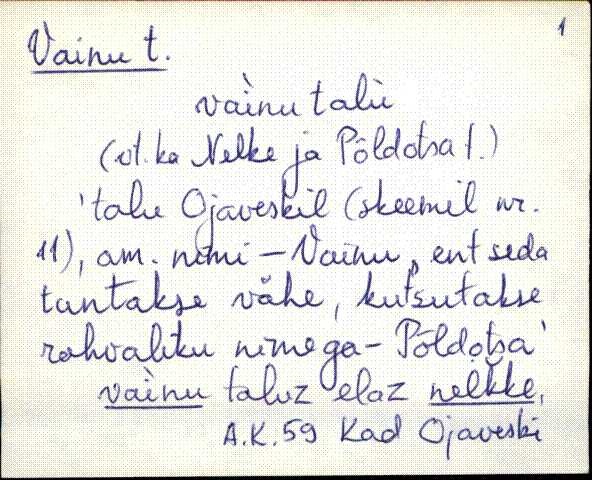 1
Vainu t.
vàinu talu
(vt. ka Nelke ja Põldotsa t.)
'talu Ojaveskil (skeemil nr.
11), am. nimi – Vainu, ent seda
tuntakse vähe, kutsutakse
rahvaliku nimega – Põldotsa'
vàinu taluz elaz nelkke,
A.K. 59 Kad Ojaveski